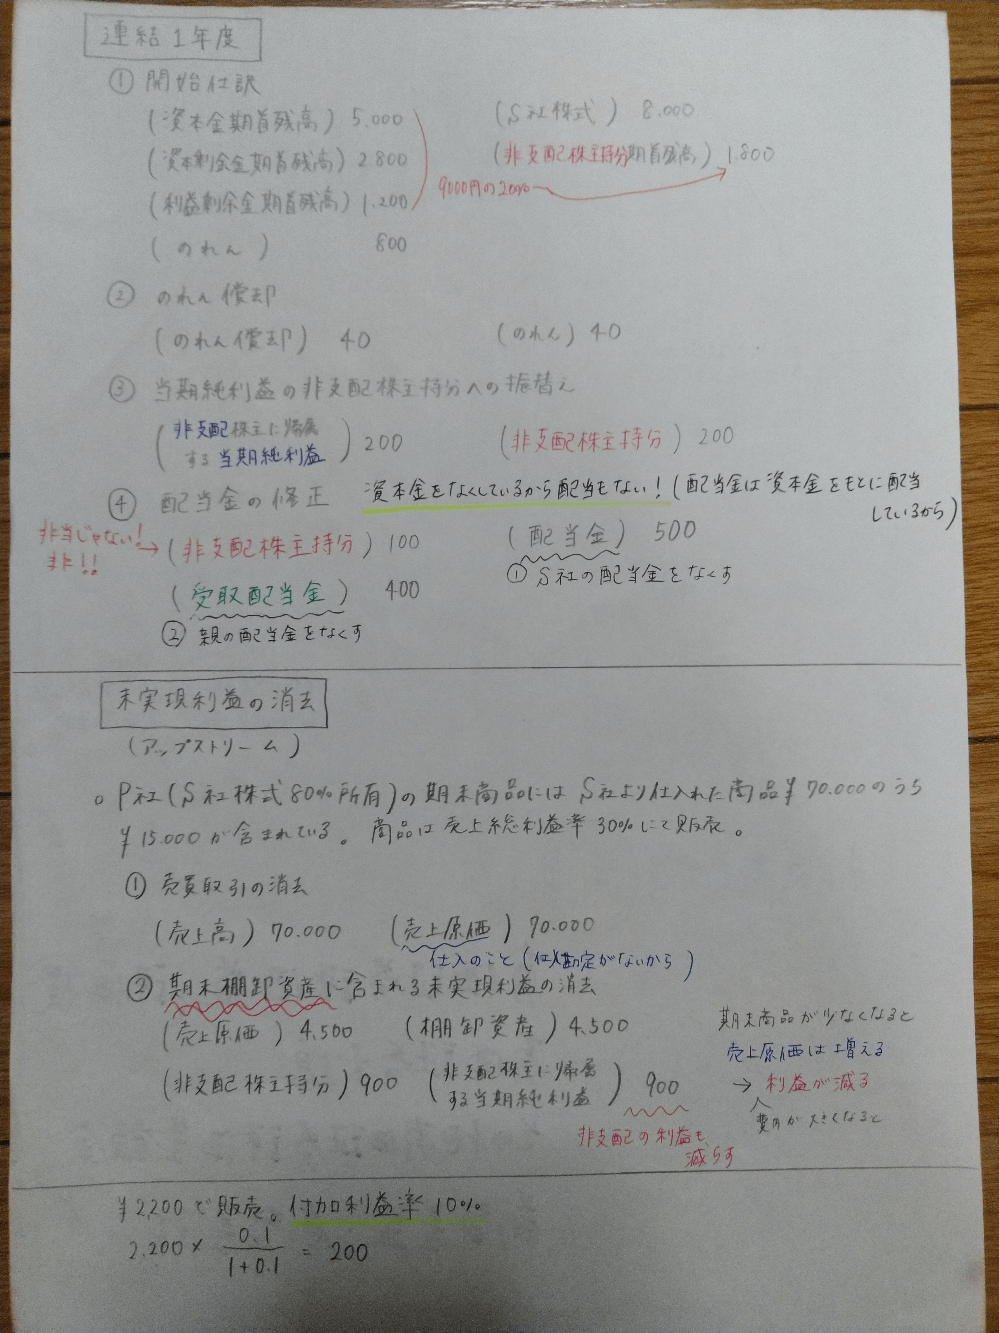 連結1年度
① 開始仕訳
(資本金期首残高) 5.000 (S社株式) 8.000
(資本剰余金期首残高) 2.800 (非支配株主持分期首残高) 1.800
9000円の20%
(利益剰余金期首残高) 1.200
(のれん) 800
② のれん償却
(のれん償却) 40 (のれん) 40
③ 当期純利益の非支配株主持分への振替え
(非支配株主に帰属
する当期純利益) 200 (非支配株主持分) 200
④ 配当金の修正 資本金をなくしているから配当もない!(配当金は資本金をもとに配当
しているから)
非当じゃない!
非!!
→ (非支配株主持分) 100 (配当金) 500
① S社の配当金をなくす
(受取配当金) 400
② 親の配当金をなくす
未実現利益の消去
(アップストリーム)
○ P社(S社株式80%所有)の期末商品にはS社より仕入れた商品¥70.000のうち
¥15.000が含まれている。商品は売上総利益率30%にて販売。
① 売買取引の消去
(売上高) 70.000 (売上原価) 70.000
仕入のこと(仕入勘定がないから)
② 期末棚卸資産に含まれる未実現利益の消去
(売上原価) 4,500 (棚卸資産) 4,500
(非支配株主持分) 900 (非支配株主に帰属
する当期純利益) 900
非支配の利益も
減らす
期末商品が少なくなると
売上原価は増える
→ 利益が減る
費用が大きくなると
¥2,200で販売。付加利益率10%
2.200 × 0.1 / 1+0.1 = 200